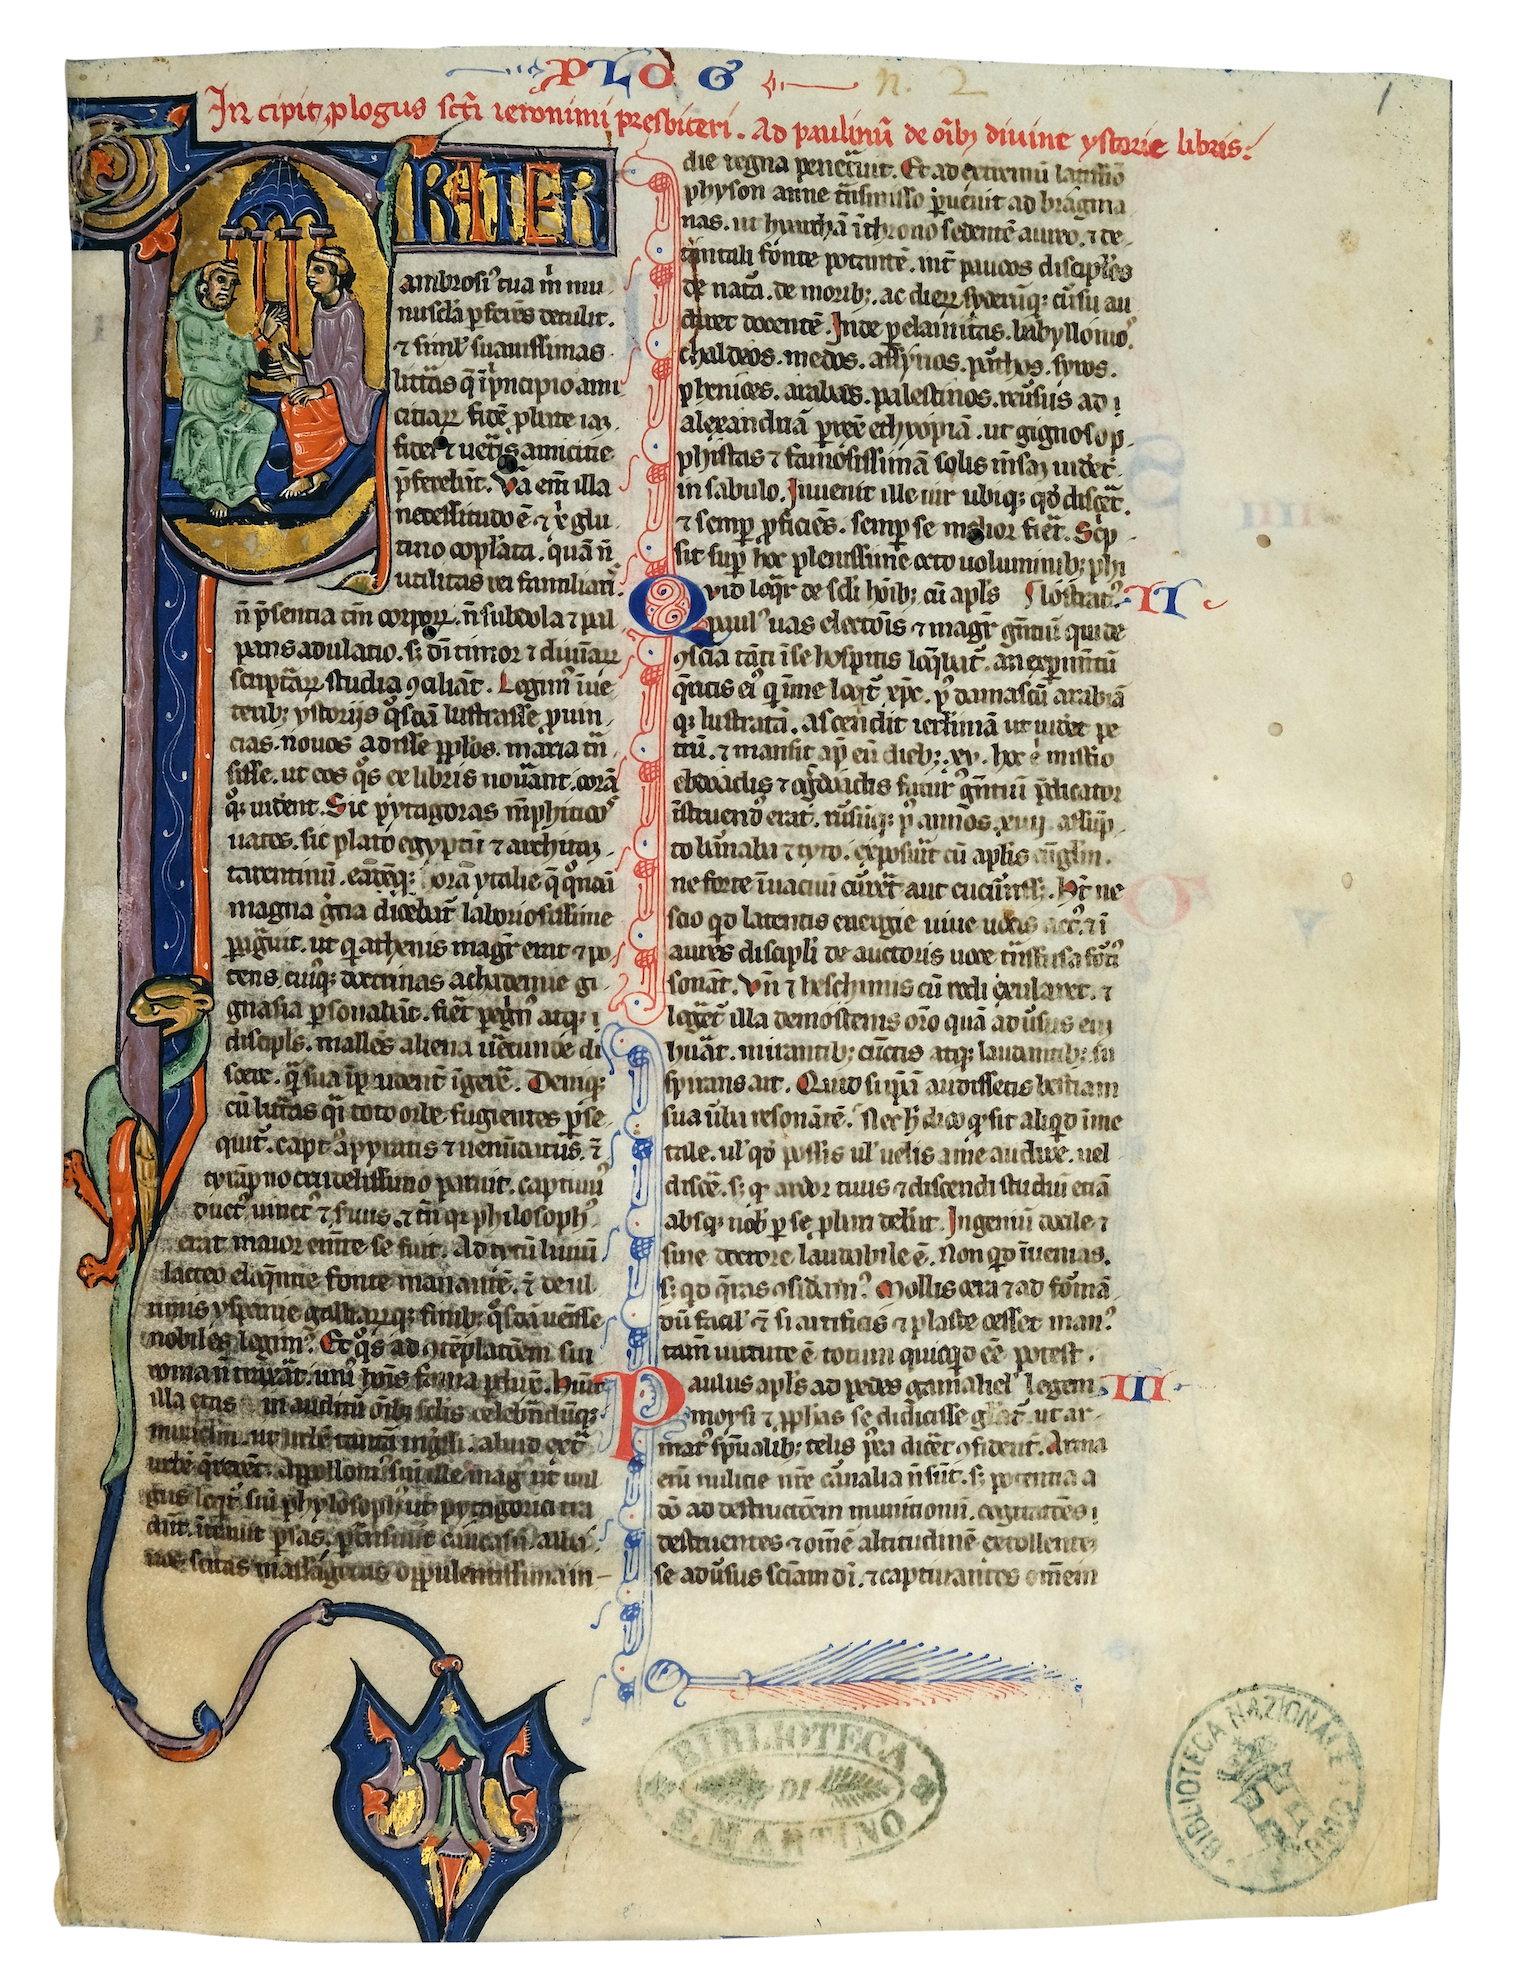 PLOG
n. 2
1
Incipit plogus scti ieronimi presbiteri. Ad paulinū de oīb; divine ystorie libris.
FRATER
ambrosi' tua m̄ mu
nuscla pferēs detulit.
⁊ siml' suavissimas
litt̄as q̄ ī pncipio ami
citiaꝝ fidē pbate iaꝫ
fidei ⁊ vet̄is amicitie
p̄ferebāt. Va eni illa
necessitudo ē ⁊ xp̄i glu
tino coplata. quā n̄
utilitas rei familiari
n̄ p̄sentia tm̄ corpoꝝ. n̄ subdola ⁊ pal
pans adulatio. sꝫ dī timor ⁊ divinaꝝ
scripturaꝝ studia ꝯciliāt. Legim' ī ve
terib; ystoriis q̊sdā lustrasse pvin
cias. novos adisse pplos. maria tn̄
sisse. ut eos q̊s ex libris nov̄ant. corā
q; vident. Sic pytagoras mēphiticos
vates. sic plato egyptū ⁊ architaꝫ
tarentinū. eādēq; orā ytalie q̄ q̊ndā
magna gr̄cia dicebat̄ laboriosissime
pagravit. ut q athenis magr̄ erat ⁊ po
tens. cuiq; doctrinas achademie gi
gnasia psonabāt. fieret peg̊n' atq; ī
discipls. mallēs aliena v̄ecunde di
scere. q̄ sua īpudent̄ īgere. Deniq;
cū litt̄as q̄i toto orbe fugientes pse
quit̄. capt' a pyratis ⁊ venūdatus. ⁊
tyrāpno crudelissimo paruit. captiv'
duct' vinct' ⁊ servus. ⁊ tn̄ q philosoph'
erat maior emēte se fuit. Ad titū liviū
lacteo eloq̄ntie fonte manantē. ⁊ de ul
timis yspanie galliarūq; finib; q̊sdā venisse
nobiles legim'. Et q̊s ad ꝯtēplatōem sui
roma n̄ traxat. uni' hois fama pduxit. Habuit
illa etas inauditū oīb; sclis celebrandūq;
miraclm. ut urbē tantā ingressi. aliud extra
urbē quererēt. Appolloni' sive ille mag' ut vul
gus loqt̄. sive phylosoph' ut pytagorici tra
dūt. ītravit psas. ptransivit caucasū. alba
nos. scitas massagetas oppulentissima in
die regna penetravit. Et ad extremū latissimo
physon amne tn̄smisso pvenit ad bragma
nas. ut hyarchā ī throno sedentē aureo. ⁊ de
tantali fonte potantē. int̄ paucos discipulos
de nat̄a. de morib;. ac dieꝝ syderūq; cūsu au
diret docentē. Inde p elamitas. babyllonios.
chaldeos. medos. assyrios. pathos. syros.
phenices. arabas. palestinos. rev̄sus ad
alexandriā prexit ethyopiā. ut gignosop
phistas ⁊ famosissimā solis mēsaꝫ videret
in sabulo. Invenit ille vir ubiq; qd̄ discet̄.
⁊ semp pficiēs. semp se melior fiet̄. Scp
sit sup hoc plenissime octo voluminib; phi
lostrat'.
II
Quid loqr̄ de scli hoib; cū apls
paul' vas electōis ⁊ magr̄ gn̄tiū qui de
ꝯscia tāti ī se hospitis loq̄bat̄. an expimētū
q̄ritis ei' q ī me loqt̄ xp̄c. p' damascū arabiā
q; lustratā. ascendit ierlimā ut videt pe
trū. ⁊ mansit ap eū dieb; .xv. hoc ē mistio
ebdoadis ⁊ ogdoadis futur' gn̄tiū p̄dicator
īstruend' erat. rūsūq; p' annos xiiij. assūp
to barnaba ⁊ tyto. exposuit cū aplis evāglm.
ne forte ī vacuū curret̄ aut cucurrisset. Ht̄ ne
scio qd latentis energie vive vocis act'. ⁊ ī
aures discipli de auctoris voce tn̄sfusa forti'
sonat. Vn̄ ⁊ heschinus cū rodi exularet. ⁊
leget̄ illa demostenis orō quā adv̄sus eū
huat̄. mirantib; cunctis atq; laudantib; su
spirans ait. Quid si ipsā audissetis bestiam
sua vba resonātē. Nec h̄ dico q sit aliqd ī me
tale. ul' qd possis ul' velis a me audire. vel
discere. sꝫ q ardor tuus ⁊ discendi studiū etiā
absq; nob' p se pbari debeat. Ingeniū docile ⁊
sine doctore laudabile ē. Non qd īvenias.
sꝫ qd q̄ras ꝯsidam'. Mollis cera ⁊ ad formā
dū facil' ⁊ si artificis ⁊ plaste cesset man'.
tam̄ virtute ē totum quicqd ēē potest.
III
Paulus apls ad pedes gamaliel' legem
moysi ⁊ pphas se didicisse gl'at̄. ut ar
mat' spūalib; telis p'ea dicet̄ ꝯfident̄. Arma
eni militie nr̄e carnalia n̄ sūt. sꝫ potentia a
dō ad destructōem munitionū. cogitatōes
destruentes ⁊ omē altitudinē extollentē
se adv̄sus sciam dī. ⁊ captivantes omēm
BIBLIOTECA
DI
S. MARTINO
BIBLIOTECA NAZIONALE